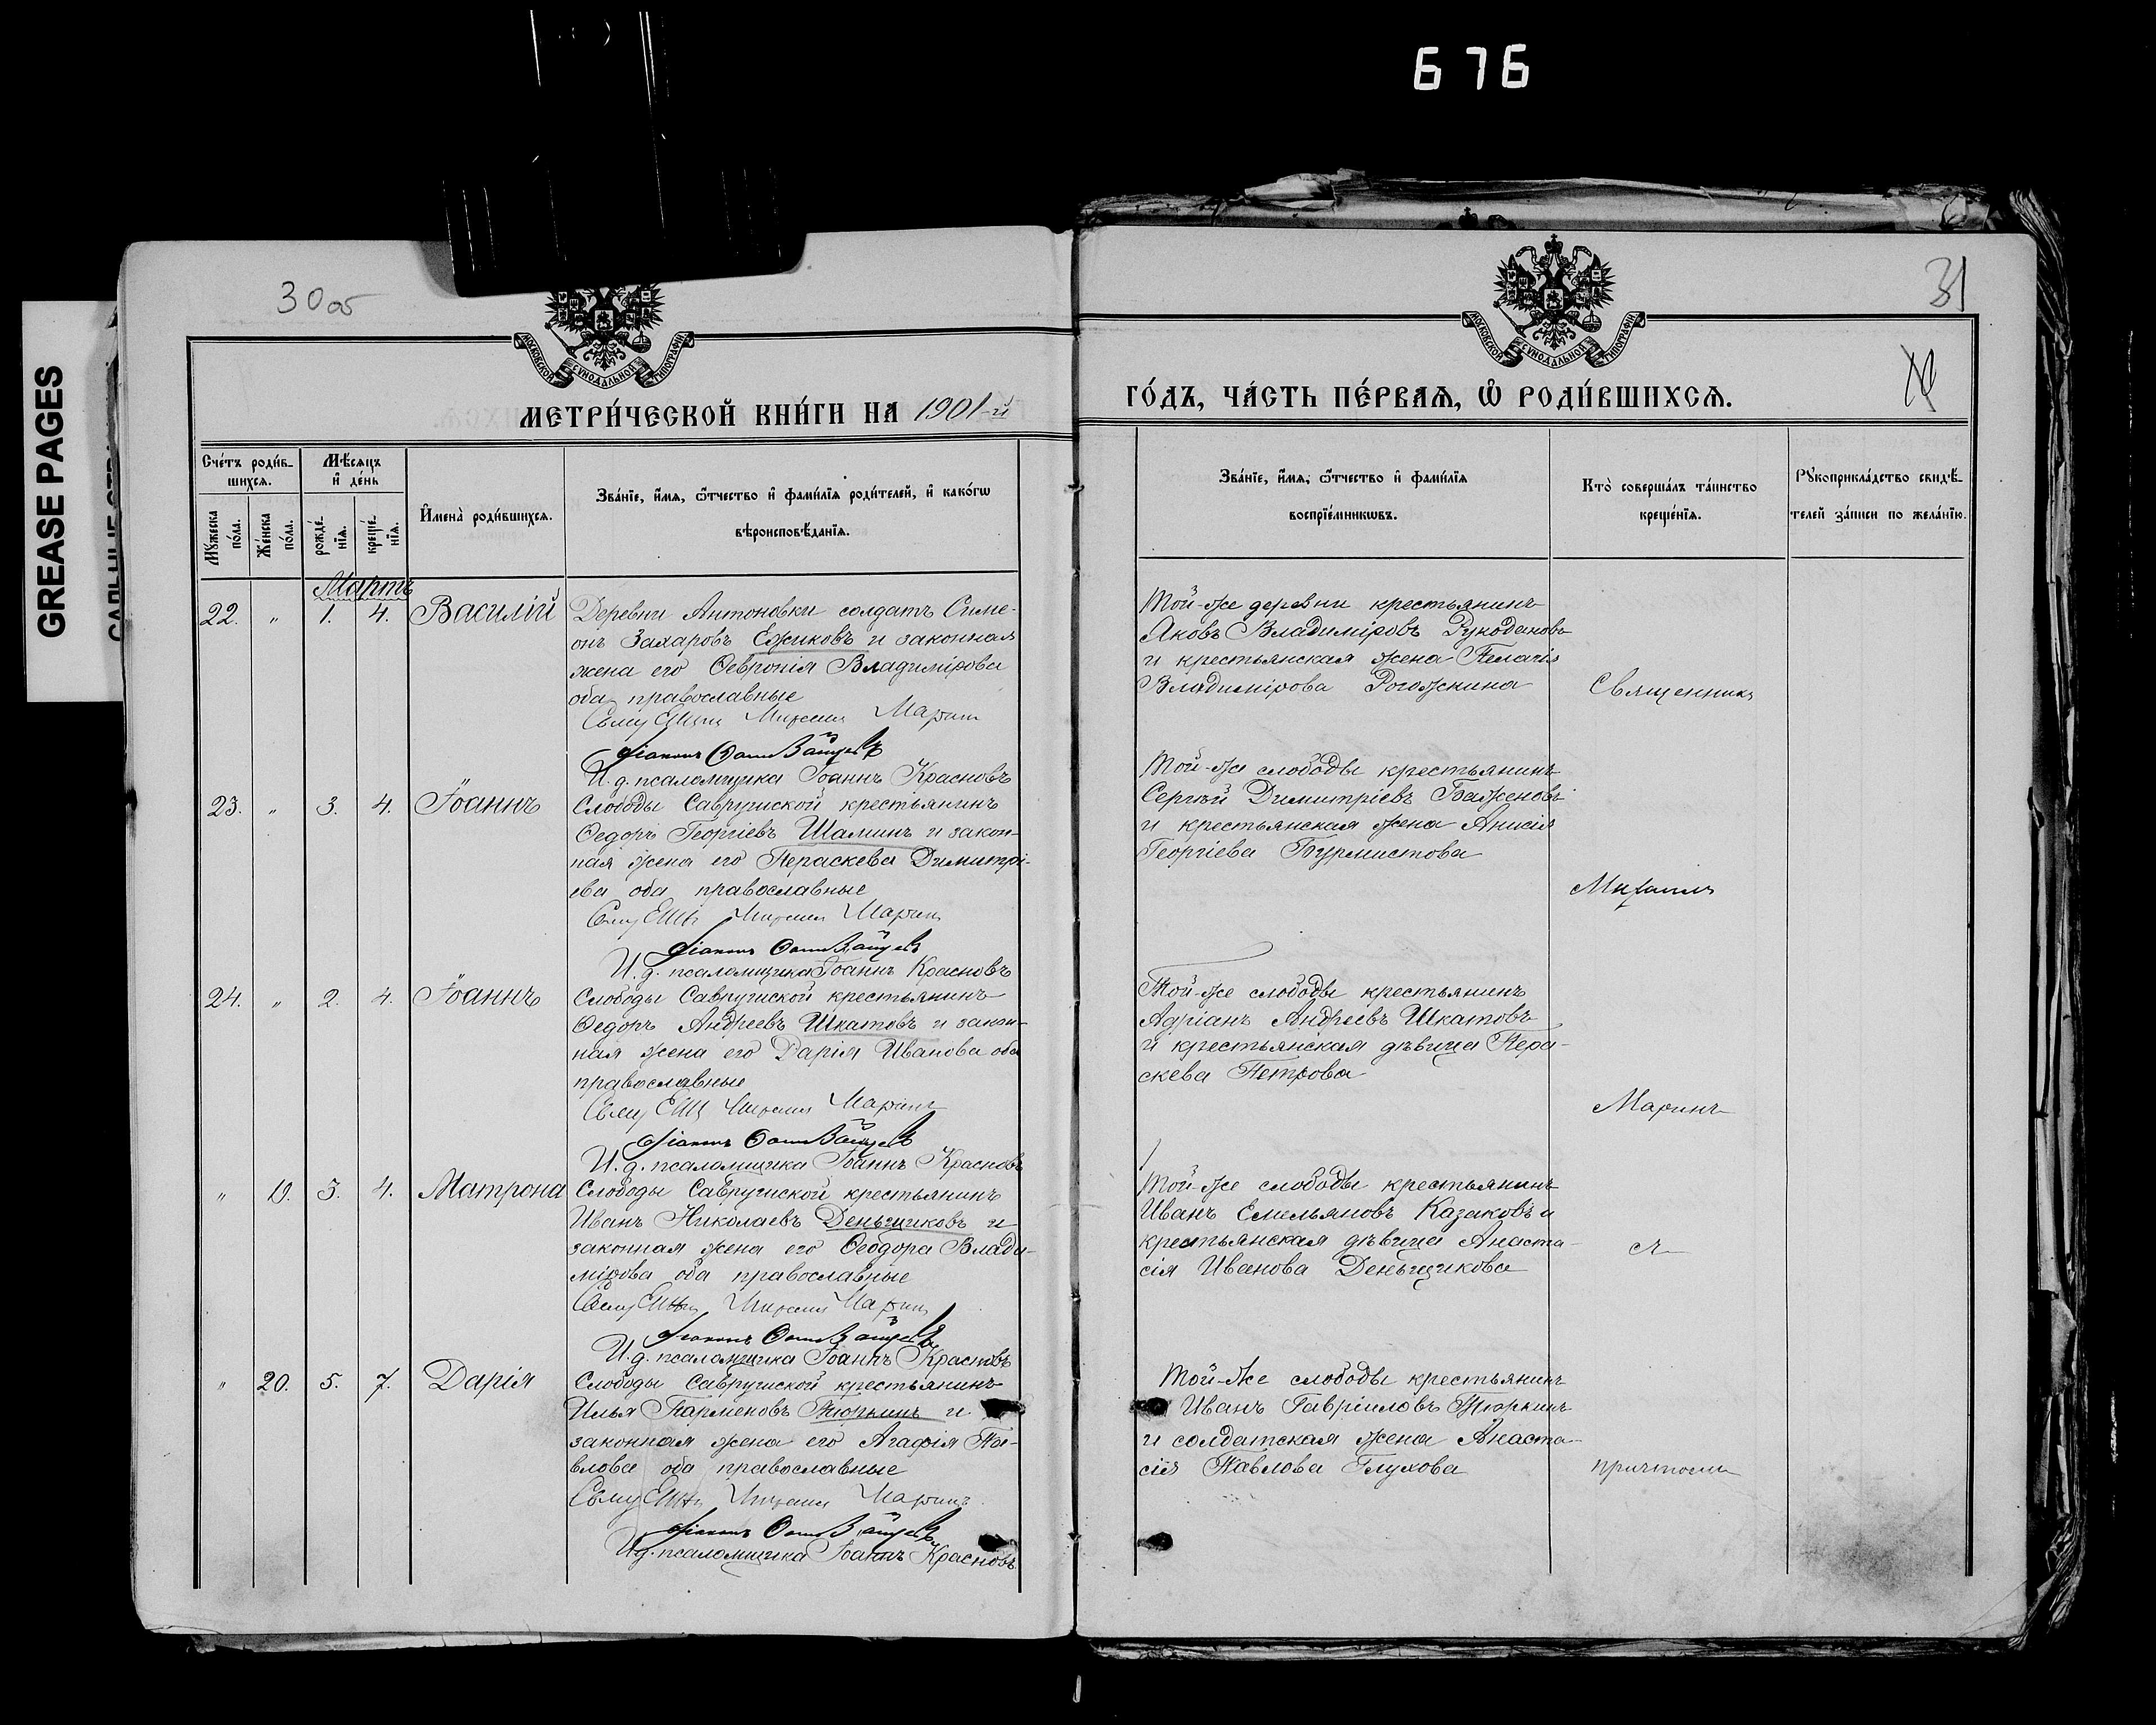 676
GREASE PAGES
30 об
31
МОСКОВСКОЙ СѴНОДАЛЬНОЙ ТИПОГРАФІИ
МОСКОВСКОЙ СѴНОДАЛЬНОЙ ТИПОГРАФІИ
МЕТРИ́ЧЕСКОЙ КНИ́ГИ НА 1901-й
ГО́ДЪ, ЧА́СТЬ ПЕ́РВАѦ, Ѡ҆ РОДИ́ВШИХСѦ.
Сче́тъ роди́в-
шихсѧ.
Мѣ́сѧцъ
и҆ де́нь
Мꙋ́жеска по́ла.
Же́нска по́ла.
рожде́-
нїѧ.
креще́-
нїѧ.
И҆мена̀ роди́вшихсѧ.
Зва́нїе, и҆́мѧ, ѻ҆́тчество и҆ фами́лїѧ роди́телей, и҆ како́гѡ
вѣроисповѣ́данїѧ.
Зва́нїе, и҆́мѧ, ѻ҆́тчество и҆ фами́лїѧ
воспрїе́мникѡвъ.
Кто̀ соверша́лъ та́инство
креще́нїѧ.
Рꙋкоприкла́дство свидѣ́-
телей за́писи по жела́нїю.
Мартъ
22. " 1. 4. Василій
Деревни Антоновки солдатъ Симе-
онъ Захаровъ Ежиковъ и законная
жена его Ѳевронія Владимірова
оба православные
Михаил Марин
Діаконъ
И. д. псаломщика Іоаннъ Красновъ
Той-же деревни крестьянинъ
Яковъ Владиміровъ Рукодановъ
и крестьянская жена Пелагія
Владимірова Рогожкина
Священникъ
23. " 3. 4. Іоаннъ
Слободы Саврушской крестьянинъ
Ѳедоръ Георгіевъ Шаминъ и закон-
ная жена его Параскева Димитрі-
ева оба православные
Михаил Марин
Діаконъ
И. д. псаломщика Іоаннъ Красновъ
Той-же слободы крестьянинъ
Сергѣй Димитріевъ Баженовъ
и крестьянская жена Анисія
Георгіева Бурмистова
Михаилъ
24. " 2. 4. Іоаннъ
Слободы Саврушской крестьянинъ
Ѳедоръ Андреевъ Шкатовъ и закон-
ная жена его Дарія Иванова оба
православные
Михаил Маринъ
Діаконъ
И. д. псаломщика Іоаннъ Красновъ
Той-же слободы крестьянинъ
Адріанъ Андреевъ Шкатовъ
и крестьянская дѣвица Пара-
скева Петрова
Маринъ
" 19. 3. 4. Матрона
Слободы Саврушской крестьянинъ
Иванъ Николаевъ Деньщиковъ и
законная жена его Ѳеодора Влади-
мірова оба православные
Михаил Марин
Діаконъ
И. д. псаломщика Іоаннъ Красновъ
Той-же слободы крестьянинъ
Иванъ Емельяновъ Казаковъ и
крестьянская дѣвица Анаста-
сія Иванова Деньщикова
съ
" 20. 5. 7. Дарія
Слободы Саврушской крестьянинъ
Илья Парменовъ Тюркинъ и
законная жена его Агафія Па-
влова оба православные
Михаил Маринъ
Діаконъ
И. д. псаломщика Іоаннъ Красновъ
Той-же слободы крестьянинъ
Иванъ Гавріиловъ Тюркинъ
и солдатская жена Анаста-
сія Павлова Глухова
причтомъ